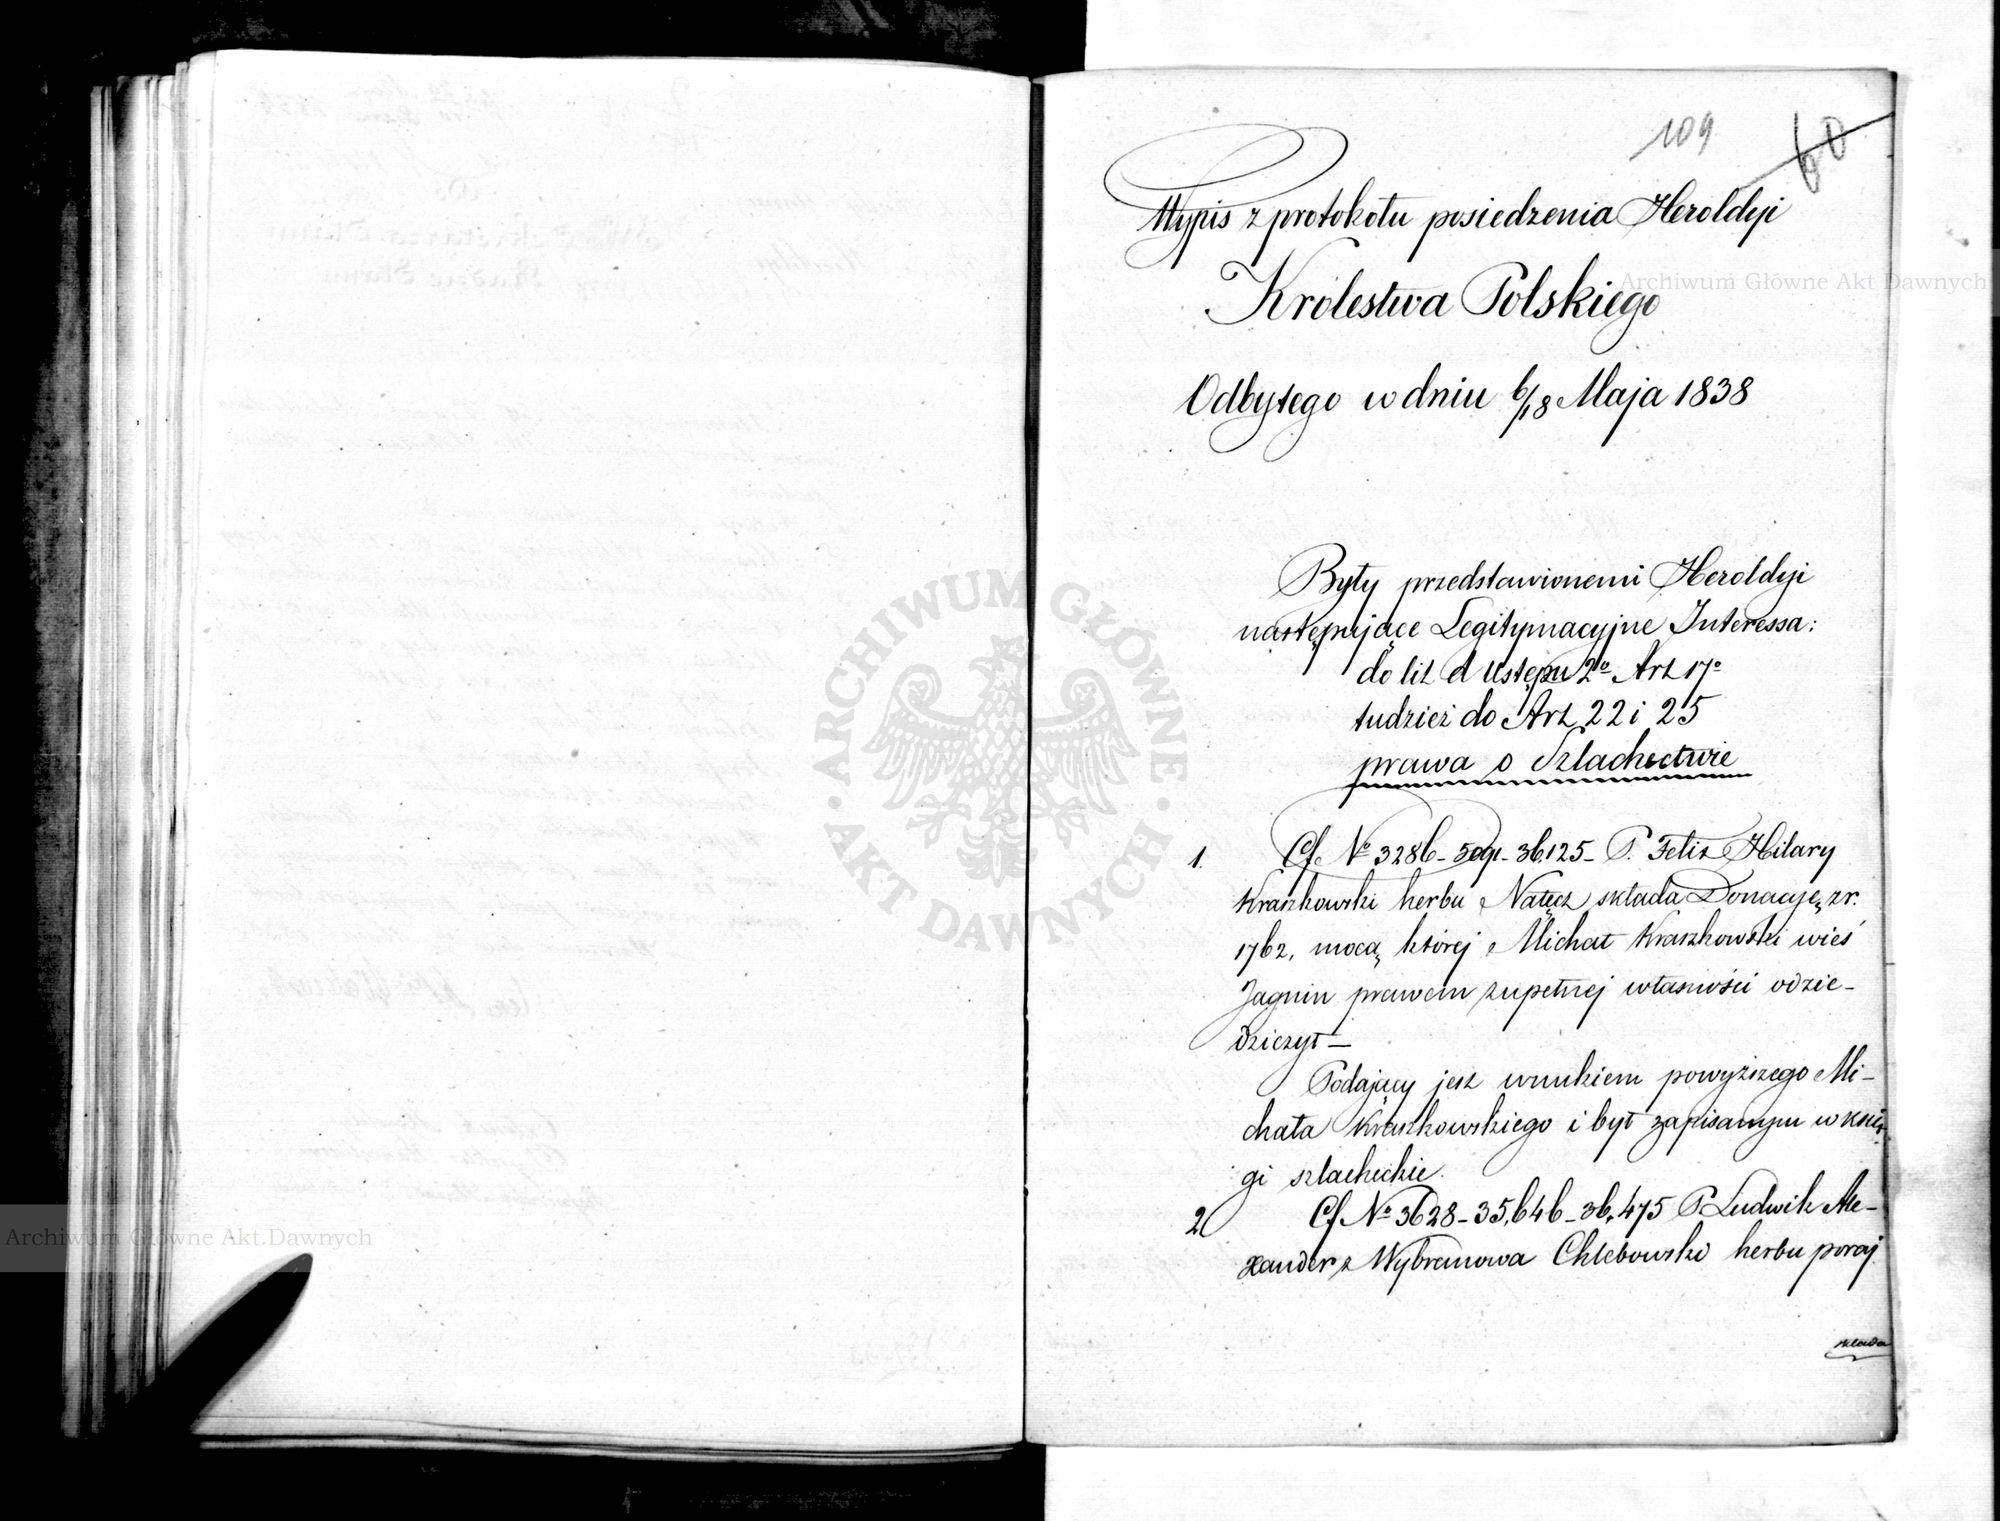 109
60
Wypis z protokołu posiedzenia Heroldyi
Królestwa Polskiego
Odbytego w dniu 6/18 Maja 1838
Były przedstawionemi Heroldyi
następujące Legitymacyjne Interessa:
do lit d Ustępu 2º Art 17º
tudzież do Art 22 i 25
prawa o Szlachectwie
1. Cf Nº 3286 - - 36,125 - P. Felix Hilary
Kraszkowski herbu Nałęcz składa Donacyę z r.
1762, mocą, której Michał Kraszkowski wieś
Jagnin prawem zupełnej własności odzie-
dziczył -
Podający jest wnukiem powyższego Mi-
chała Kraszkowskiego i był zapisanym w Księ-
gi szlacheckie.
2 Cf Nº 3628 - 35,646 - 36,475 P. Ludwik Ale-
xander z Wybranowa Chlebowski herbu poraj
składa
ARCHIWUM GŁÓWNE
AKT DAWNYCH
Archiwum Główne Akt Dawnych
Archiwum Główne Akt Dawnych